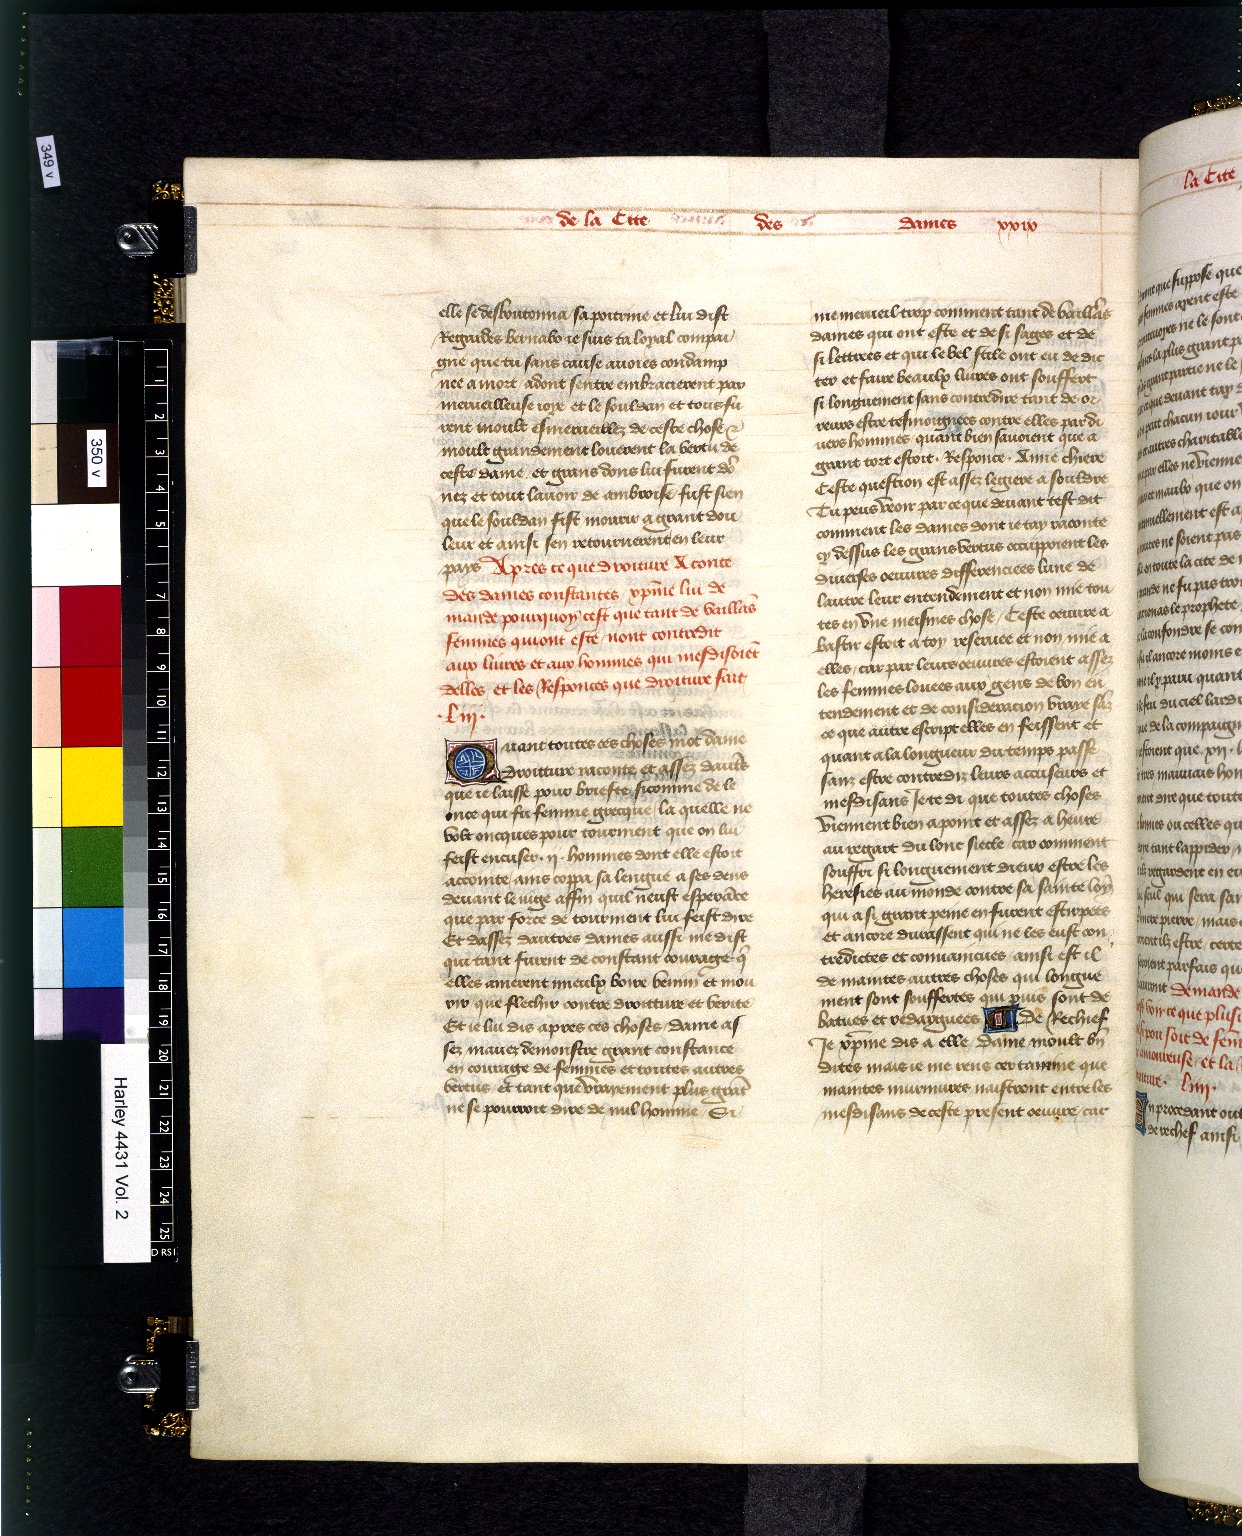 349 v
350 v
Harley 4431 Vol. 2
1
2
3
4
5
6
7
8
9
10
11
12
13
14
15
16
17
18
19
20
21
22
23
24
25
de la Cite des dames
elle se desboutonna sa poitrine et lui dist
Regardes bernabo ie suis ta loyal compai
gne que tu sans cause auoies condamp
nee a mort adont sentre embracierent par
merueilleuse ioye et le souldan et tous fu
rent moult esmerueillez de ceste chose et
moult grandement louerent la vertu de
ceste dame et grans dons lui furent dō
nez et tout lauoir de ambroise fust sien
que le souldan fist mourir a grant dou
leur et ainsi sen retournerent en leur
pays Apres ce que droiture a conte
des dames constantes xpīne lui de
mande pourquoy cest que tant de vaillās
femmes qui ont este nont contredit
aux liures et aux hommes qui mesdisoiēt
delles et les Responces que droiture fait
.Liij.
Quant toutes ces choses mot dame
Droitture raconte et assez dautres
que ie laisse pour briefte sicomme de le
once qui fu femme grecque la quelle ne
volt oncques pour tourment que on lui
feist encuser .ij. hommes dont elle estoit
accointe ains coppa sa lengue a ses dens
deuant le iuge affin quil neust esperāce
que par force de tourment lui feist dire
Et dassez dautres dames aussi me dist
qui tant furent de constant courage q̄
elles amerent mieulx boire venin et mou
rir que flechir contre droitture et verite
Et ie lui dis apres ces choses dame as
sez mauez demonstre grant constance
en courage de femmes et toutes autres
vertus et tant que vrayement plus grāt
ne se pourroit dire de nul homme Si
me merueil trop comment tant de vaillās
dames qui ont este et de si sages et de
si lettrees et qui le bel stile ont eu de dic
ter et faire beaulx liures ont souffert
si longuement sans contredire tant de or
reurs estre tesmoignees contre elles par di
uers hommes quant bien sauoient que a
grant tort estoit. Responce. Amie chiere
Ceste question est assez legiere a souldre
Tu peus veoir par ce que deuant test dit
comment les dames dont ie tay raconte
cy dessus les grans vertus occupperent les
diuerses oeuures differenciees lune de
lautre leur entendement et non mie tou
tes en vne meismes chose Ceste oeuure a
bastir estoit a toy reseruee et non mie a
elles car par leurs oeuures estoient assez
les femmes louees aux gens de bon en
tendement et de consideracion vraye sās
ce que autre escript elles en feissent et
quant a la longueur du temps passe
sanz estre contrediz leurs accuseurs et
mesdisans Je te di que toutes choses
viennent bien a point et assez a heure
au regart du lonc siecle car comment
souffri si longuement dieux estre les
heresies au monde contre sa sainte loy
qui a si grant peine en furent estirpees
et ancore durassent qui ne les eust con
tredictes et conuaincues ainsi est il
de maintes autres choses qui longue
ment sont souffertes qui puis sont de
batues et redarguees De Rechief
Je xpīne dis a elle Dame moult bn̄
dites mais ie me rens certainne que
maintes murmures naistront entre les
mesdisans de ceste present oeuure car
la Cite
demande
.Liiij.